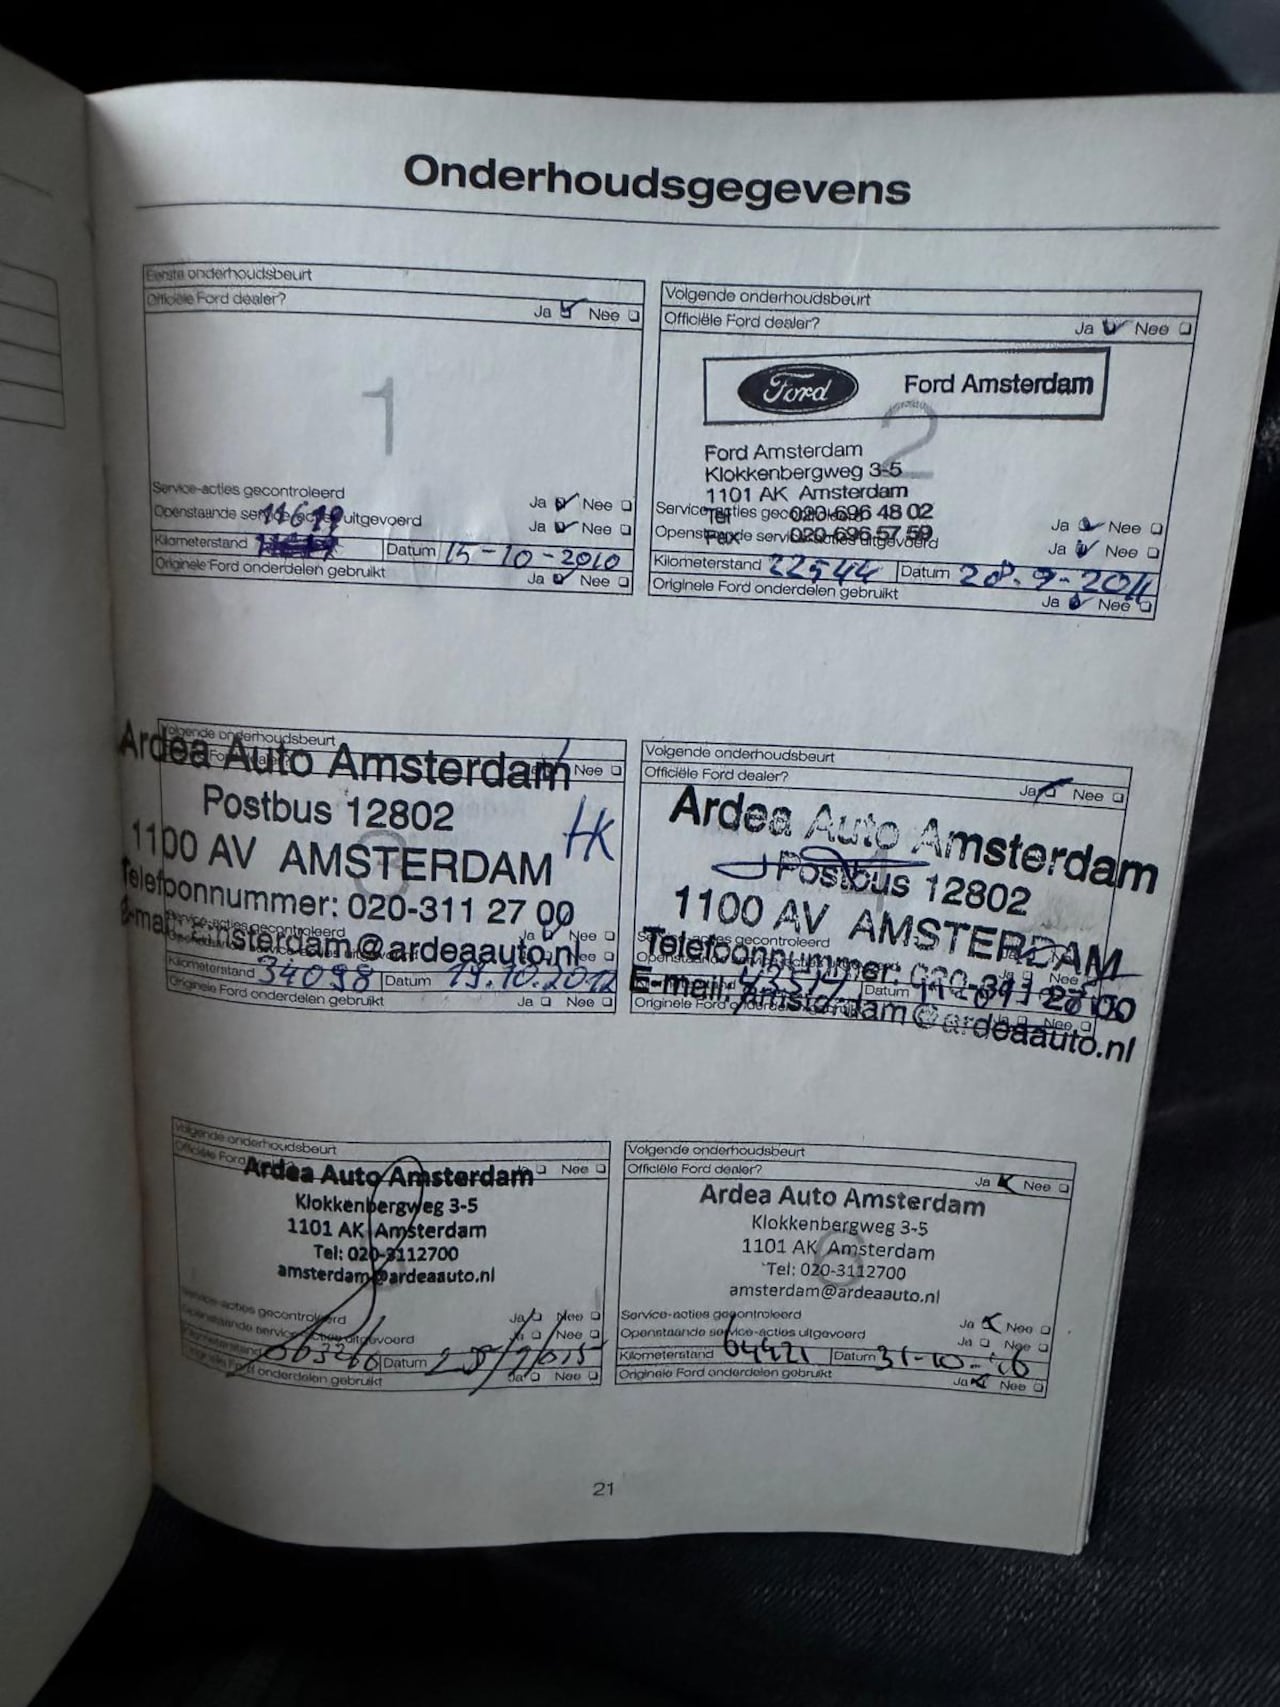 Onderhoudsgegevens
Eerste onderhoudsbeurt
Officiële Ford dealer?
Ja Nee
1
Service-acties gecontroleerd
Ja Nee
Openstaande service-acties uitgevoerd
Ja Nee
11619
Kilometerstand
Datum 15-10-2010
Originele Ford onderdelen gebruikt
Ja Nee
Volgende onderhoudsbeurt
Officiële Ford dealer?
Ja Nee
Ford Ford Amsterdam
2
Ford Amsterdam
Klokkenbergweg 3-5
1101 AK Amsterdam
Tel 020-696 48 02
Fax 020-696 57 59
Service-acties gecontroleerd
Ja Nee
Openstaande service-acties uitgevoerd
Ja Nee
Kilometerstand 22544 Datum 28-9-2011
Originele Ford onderdelen gebruikt
Ja Nee
Volgende onderhoudsbeurt
Nee
Ardea Auto Amsterdam
Postbus 12802
HK
3
1100 AV AMSTERDAM
Telefoonnummer: 020-311 27 00
E-mail: amsterdam@ardeaauto.nl
Service-acties gecontroleerd
Ja Nee
Nee
Kilometerstand 34098 Datum 19.10.2012
Originele Ford onderdelen gebruikt
Ja Nee
Volgende onderhoudsbeurt
Officiële Ford dealer?
Ja Nee
Ardea Auto Amsterdam
Postbus 12802
1100 AV AMSTERDAM
Telefoonnummer: 020-311 27 00
E-mail: amsterdam@ardeaauto.nl
gecontroleerd
Datum
Originele Ford onderdelen
Nee
Volgende onderhoudsbeurt
Officiële Ford
Nee
Ardea Auto Amsterdam
Klokkenbergweg 3-5
1101 AK Amsterdam
Tel: 020-3112700
amsterdam@ardeaauto.nl
Service-acties gecontroleerd
Ja Nee
Openstaande service-acties uitgevoerd
Nee
Kilometerstand Datum
Originele Ford onderdelen gebruikt
Ja Nee
Volgende onderhoudsbeurt
Officiële Ford dealer?
Ja Nee
Ardea Auto Amsterdam
Klokkenbergweg 3-5
1101 AK Amsterdam
6
Tel: 020-3112700
amsterdam@ardeaauto.nl
Service-acties gecontroleerd
Ja Nee
Openstaande service-acties uitgevoerd
Ja Nee
Kilometerstand 64421 Datum 31-10-16
Originele Ford onderdelen gebruikt
Ja Nee
21